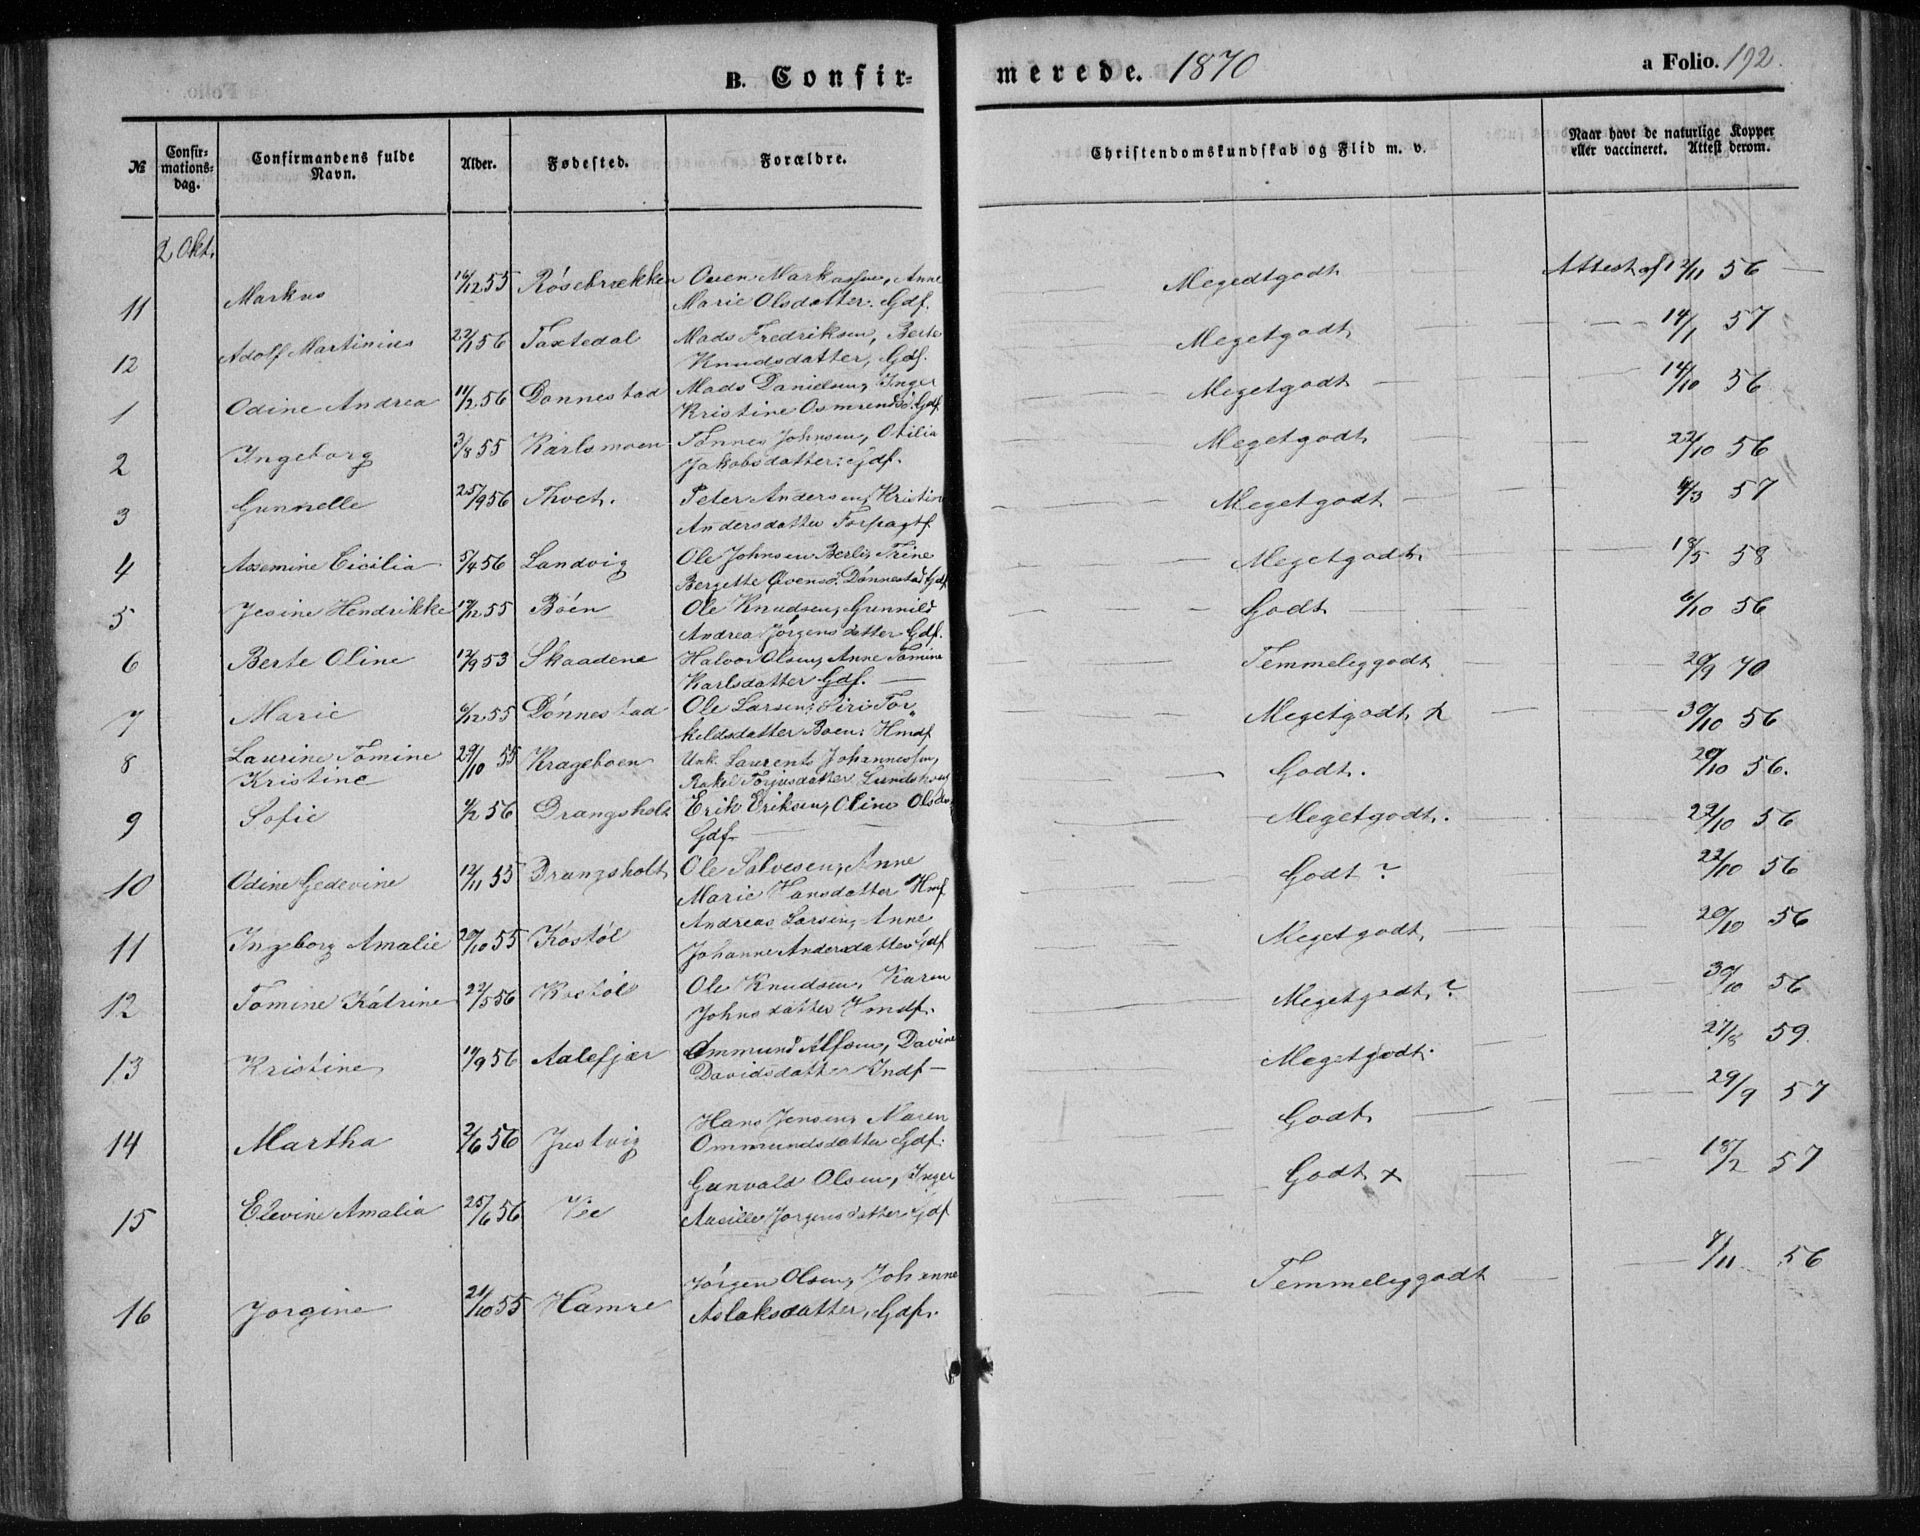 B. Confir- merede. 1870 a Folio. 192.
№ Confir-mations-dag. Confirmandens fulde Navn. Alder. Fødested. Forældre. Christendomskundskab og Flid m. v. Naar havt de naturlige Kopper eller vaccineret. Attest derom.
2 Okt.
11 Markus 16/12 55 Røsebrækken Ouen Markussen, Anne Megedtgodt Attest af 12/11 56
Marie Olsdatter. Gdf.
12 Adolf Martinius 22/1 56 Taxtedal Mads Fredriksen, Berte Megetgodt 14/1 57
Knudsdatter, Gdf.
1 Odine Andrea 11/2 56 Donnestad Mads Danielsen, Inger Megetgodt 14/10 56
Kristine Osmrendsd. Gdf.
2 Ingeborg 3/8 55 Karlsmoen Tønnes Johnsen, Otilia Megetgodt 22/10 56
Jakobsdatter. Gdf.
3 Gunnelle 25/9 56 Thvet. Peter Andersen, Kristine Megetgodt 4/3 57
Andersdatter Forpagtf
4 Assemine Cicilia 5/4 56 Landvig Ole Johnsen Berlis Trine Megetgodt. 18/5 58
Bergette Øvensd. Dønnestad Gdf
5 Jesine Hendrikke 19/12 55 Boén Ole Knudsen, Gunnild Godt 6/10 56
Andrea Jørgensdatter Gdf.
6 Berte Oline 12/9 53 Skaadene Halvor Olsen, Anne Tomine Temmeliggodt 20/9 70
Karlsdatter Gdf.
7 Marie 6/12 55 Dønnestad Ole Larsen, Siri Tor- Megetgodt x 30/10 56
keldsdatter Boen. Hmdf
8 Laurine Tomine 29/10 55 Krageboen Unk. Laurents Johannessen, Godt. 20/10 56.
Kristine Rakel Torjusdatter
9 Sofie 4/2 56 Drangsholt Erik Eriksen, Oline Olsd Megetgodt. 22/10 56
Gdf
10 Odine Gedevine 12/11 55 Drangsholt Ole Salvesen, Anne Godt ? 22/10 56
Marie Hansdatter Hmf
11 Ingeborg Amalie 20/10 55 Kostøl Andreas Larsen, Anne Megetgodt, 20/10 56
Johanne Andersdatter Gdf
12 Tomine Katrine 22/5 56 Kostøl Ole Knudsen, Karen Megetgodt, ? 30/10 56
Johnsdatter Hmdf.
13 Kristine 19/9 56 Aalefjær Ommund Alfsen, Davine Megetgodt. 27/8 59.
Davidsdatter Indf
14 Martha 2/6 56 Justvig Hans Jensen, Maren Godt 29/9 57
Ommundsdatter Gdf.
15 Elevine Amalia 25/6 56 Vee Gunvald Olsen, Inger Godt x 18/2 57
Aasille Jørgensdatter Gdf
16 Jorgine 21/10 55 Hamre Jørgen Olsen, Johanne Temmeliggodt 7/11 56
Aslaksdatter, Gdf.